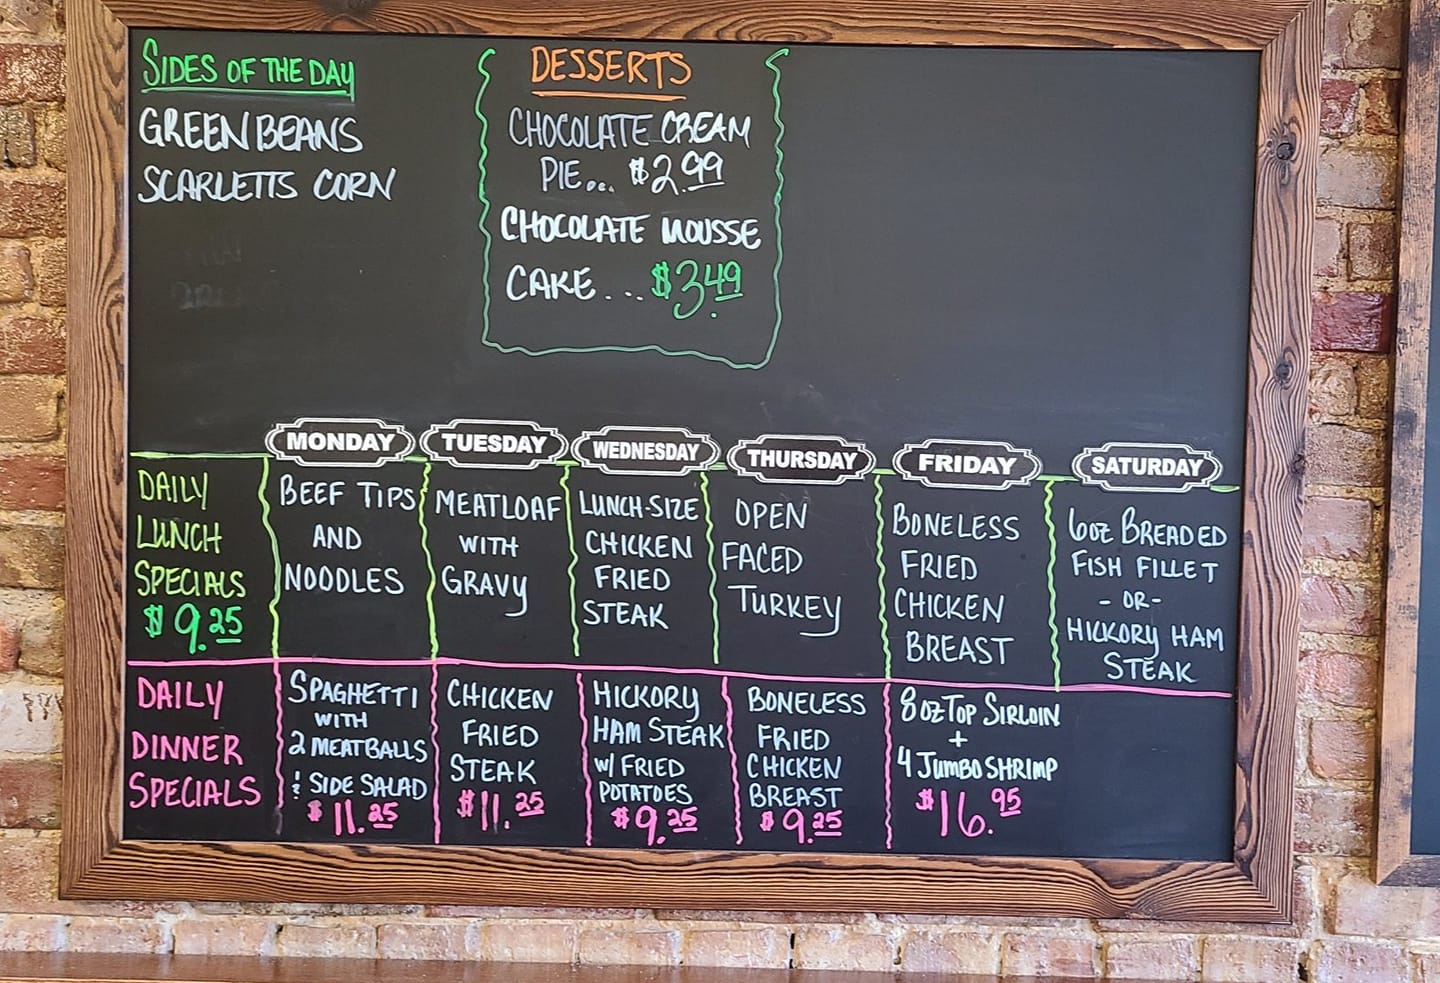 SIDES OF THE DAY
GREEN BEANS
SCARLETTS CORN
DESSERTS
CHOCOLATE CREAM
PIE... $2.99
CHOCOLATE MOUSSE
CAKE... $3.49
MONDAY
TUESDAY
WEDNESDAY
THURSDAY
FRIDAY
SATURDAY
DAILY
LUNCH
SPECIALS
$9.25
BEEF TIPS
AND
NOODLES
MEATLOAF
WITH
GRAVY
LUNCH-SIZE
CHICKEN
FRIED
STEAK
OPEN
FACED
TURKEY
BONELESS
FRIED
CHICKEN
BREAST
6oz BREADED
FISH FILLET
-OR-
HICKORY HAM
STEAK
DAILY
DINNER
SPECIALS
SPAGHETTI
WITH
2 MEATBALLS
& SIDE SALAD
$11.25
CHICKEN
FRIED
STEAK
$11.25
HICKORY
HAM STEAK
W/ FRIED
POTATOES
$9.25
BONELESS
FRIED
CHICKEN
BREAST
$9.25
8oz TOP SIRLOIN
+
4 JUMBO SHRIMP
$16.95